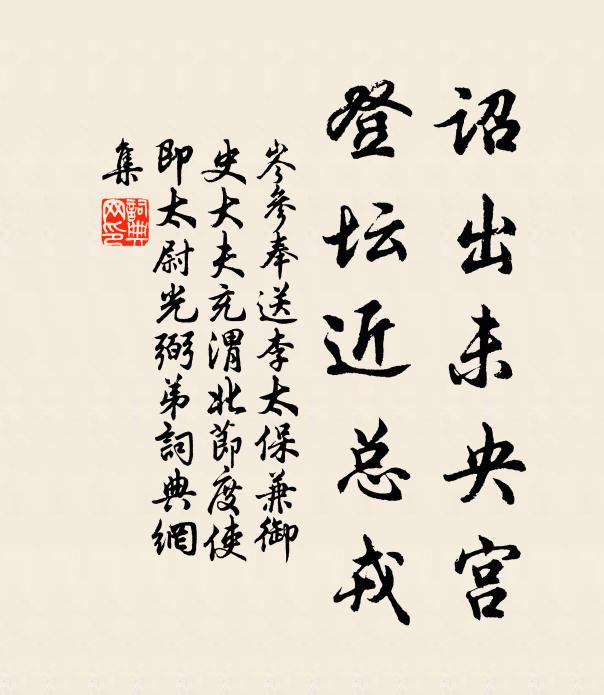 詔出未央宮
登坛近总戎
岑參奉送李太保兼御
史大夫充渭北節度使
即太尉光弼弟詞典網
集
詞典網印